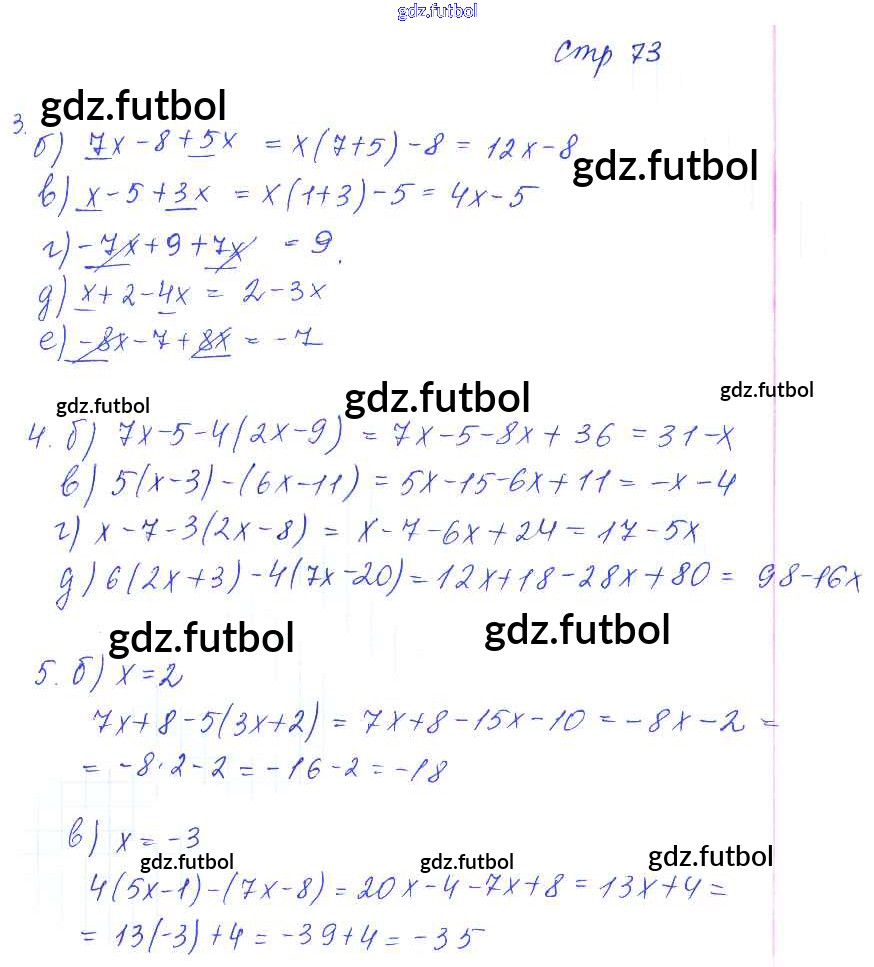 gdz.futbol
стр 73
gdz.futbol
3. б) 7x - 8 + 5x = x(7+5) - 8 = 12x - 8
gdz.futbol
в) x - 5 + 3x = x(1+3) - 5 = 4x - 5
г) -7x + 9 + 7x = 9.
д) x + 2 - 4x = 2 - 3x
е) -8x - 7 + 8x = -7
gdz.futbol gdz.futbol gdz.futbol
4. б) 7x - 5 - 4(2x - 9) = 7x - 5 - 8x + 36 = 31 - x
в) 5(x - 3) - (6x - 11) = 5x - 15 - 6x + 11 = -x - 4
г) x - 7 - 3(2x - 8) = x - 7 - 6x + 24 = 17 - 5x
д) 6(2x + 3) - 4(7x - 20) = 12x + 18 - 28x + 80 = 98 - 16x
gdz.futbol gdz.futbol
5. б) x = 2
7x + 8 - 5(3x + 2) = 7x + 8 - 15x - 10 = -8x - 2 =
= -8·2 - 2 = -16 - 2 = -18
в) x = -3
gdz.futbol gdz.futbol gdz.futbol
4(5x - 1) - (7x - 8) = 20x - 4 - 7x + 8 = 13x + 4 =
= 13(-3) + 4 = -39 + 4 = -35